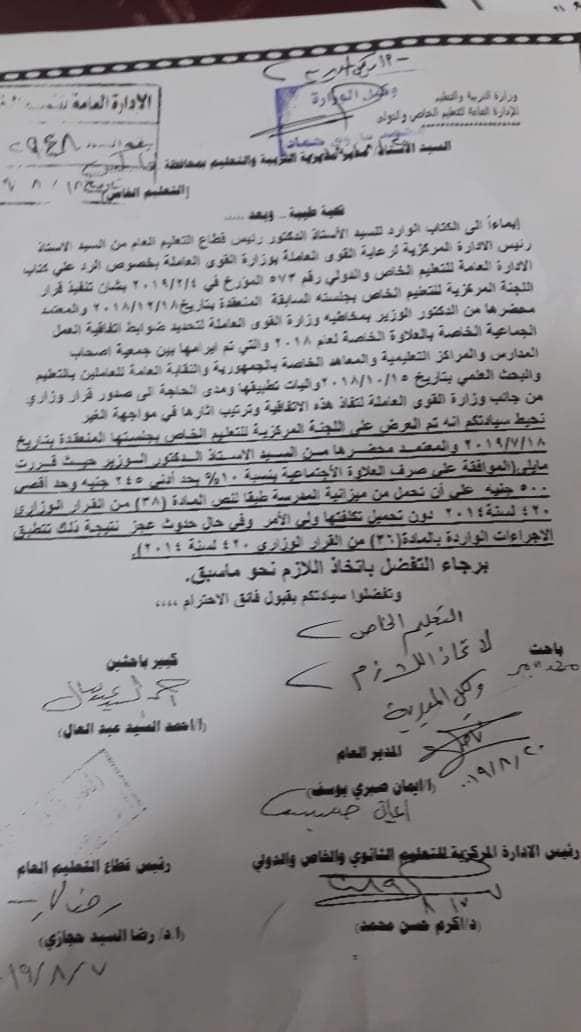 وزارة التربية والتعليم
الإدارة العامة للتعليم الخاص والدولي
وكيل الوزارة
الإدارة العامة
السيد الأستاذ/ مدير مديرية التربية والتعليم بمحافظة
(التعليم الخاص)
تحية طيبة .. وبعد .....
إيماءاً الى الكتاب الوارد للسيد الأستاذ الدكتور رئيس قطاع التعليم العام من السيد الاستاذ
رئيس الادارة المركزية لرعاية القوى العاملة بوزارة القوى العاملة بخصوص الرد علي كتاب
الادارة العامة للتعليم الخاص والدولي رقم ٥٧٣ المؤرخ في ٢٠١٩/٢/٤ بشان تنفيذ قرار
اللجنة المركزية للتعليم الخاص بجلسته السابقة المنعقدة بتاريخ ٢٠١٨/١٢/١٨ والمعتمد
محضرها من الدكتور الوزير بمخاطبه وزارة القوى العاملة لتحديد ضوابط اتفاقية العمل
الجماعية الخاصة بالعلاوة الخاصة لعام ٢٠١٨ والتي تم ابرامها بين جمعية اصحاب
المدارس والمراكز التعليمية والمعاهد الخاصة بالجمهورية والنقابة العامة للعاملين بالتعليم
والبحث العلمي بتاريخ ٢٠١٨/١٠/١٥ واليات تطبيقها ومدى الحاجة الى صدور قرار وزاري
من جانب وزارة القوى العاملة لنفاذ هذه الاتفاقية وترتيب اثارها في مواجهة الغير
نحيط سيادتكم انه تم العرض على اللجنة المركزية للتعليم الخاص بجلستها المنعقدة بتاريخ
٢٠١٩/٧/١٨ والمعتمد محضرها من السيد الاستاذ الدكتور الوزير حيث قررت
مايلي(الموافقة علي صرف العلاوة الأجتماعية بنسبة ١٠% بحد أدني ٢٤٥ جنيه وحد أقصي
٥٠٠ جنيه علي أن تحمل من ميزانية المدرسة طبقا لنص المادة (٣٨) من القرار الوزاري
٤٢٠ لسنة ٢٠١٤ دون تحميل تكلفتها ولي الأمر وفي حال حدوث عجز نتيجة ذلك تتطبق
الاجراءات الواردة بالمادة(٣٦) من القرار الوزاري ٤٢٠ لسنة ٢٠١٤).
برجاء التفضل باتخاذ اللازم نحو ماسبق.
وتفضلوا سيادتكم بقبول فائق الاحترام ،،،،
التعليم الخاص
لاتخاذ اللازم
وكيل المديرية
باحث
كبير باحثين
ا/احمد السيد عبد العال)
المدير العام
٢٠١٩/٨/٢٠
(ا/ايمان صبري يوسف)
رئيس الادارة المركزية للتعليم الثانوي والخاص والدولي
رئيس قطاع التعليم العام
(د/اكرم حسن محمد)
(ا.د/ رضا السيد حجازي)